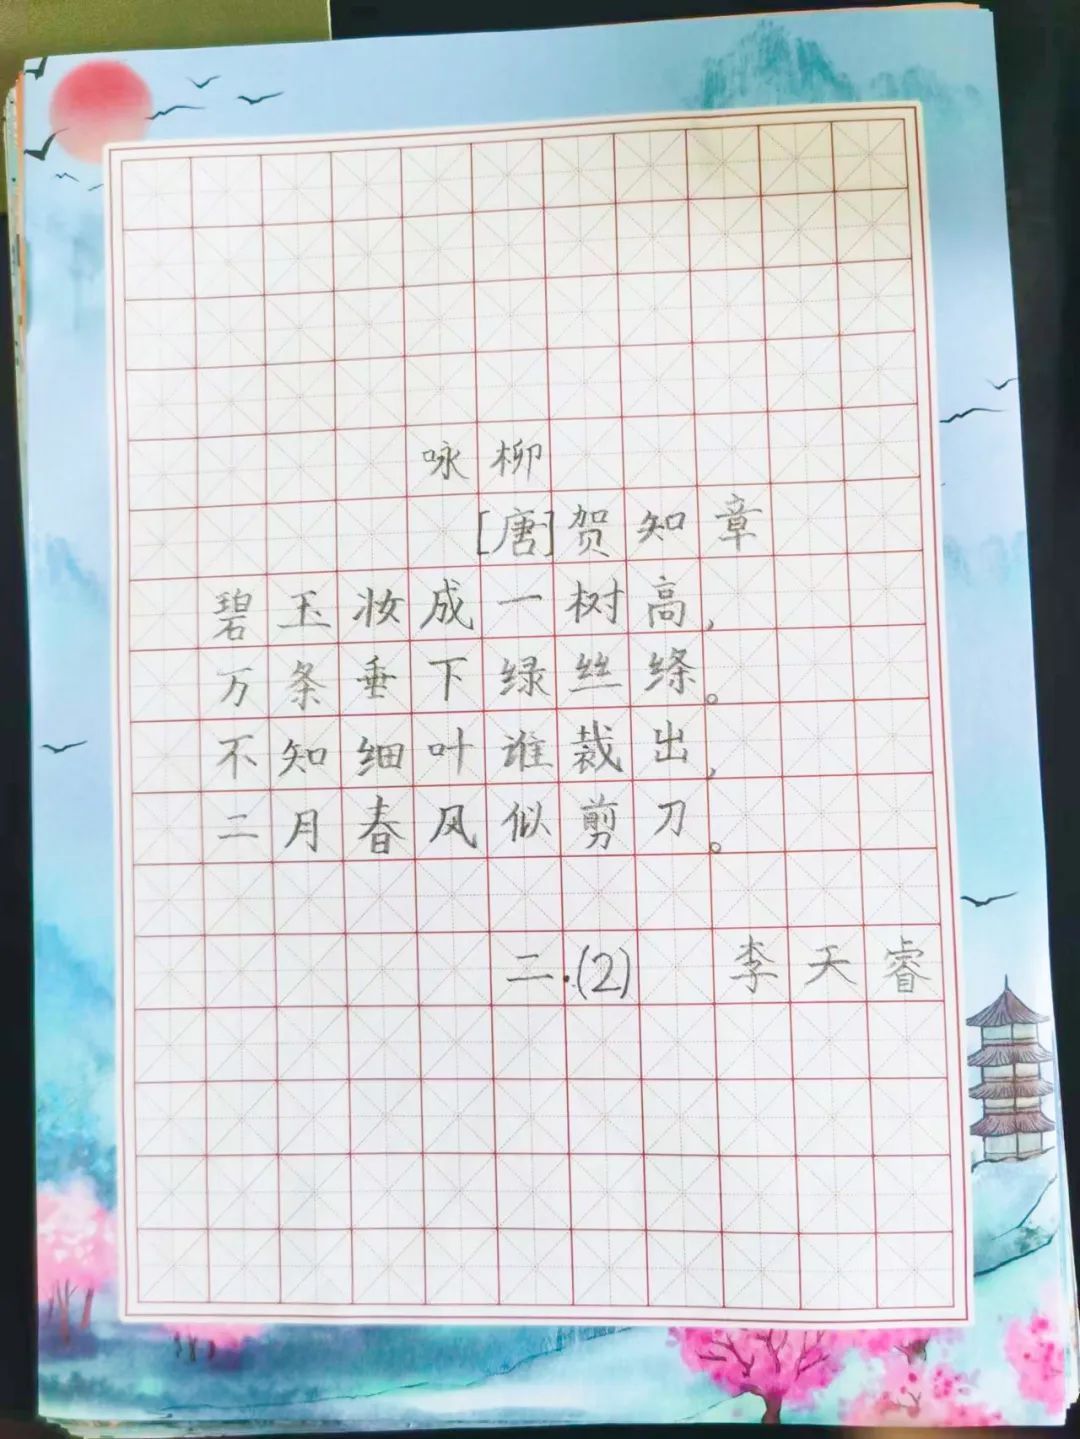 咏柳
[唐]贺知章
碧玉妆成一树高,
万条垂下绿丝绦。
不知细叶谁裁出,
二月春风似剪刀。
二.(2) 李天睿